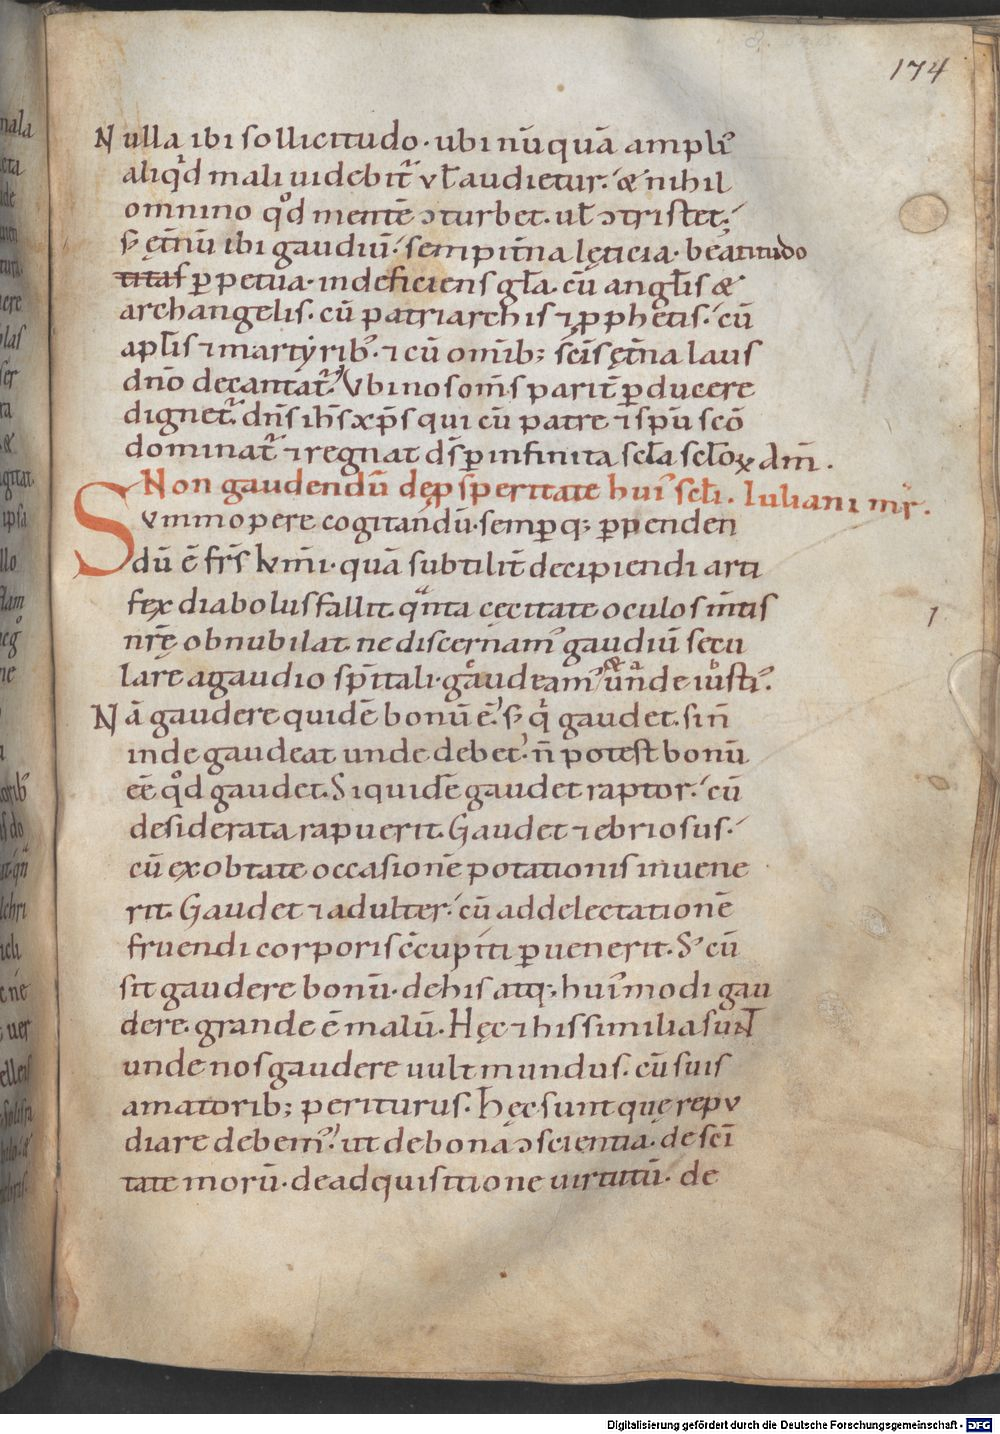 174
Nulla ibi sollicitudo · ubi nūquā ampli᾿
aliq̊d mali uidebit᷑ vƚ audietur. & nihil
omnino q̊d mentē ɔturbet. uƚ ɔtristet.
s; ęt̄nū ibi gaudiū. sempit̄na lęticia · beatitudo
titas ꝑpetua · indeficiens gƚa. cū angƚis &
archangelis. cū patriarchis ⁊ ꝓphetis. cū
apƚis ⁊ martyrib᾿. ⁊ cū omīb; sc̄is ęt̄na laus
dn̄o decantat᷑. Vbi nos om̄s parit̄ ꝑducere
dignet᷑ dn̄s ih̄s xp̄s qui cū patre ⁊ sp̄u sc̄o
dominat᷑ ⁊ regnat ds̄ ꝑ infinita scƚa scƚoꝝ Am̄.
Non gaudendū de ꝓsperitate hui᾿ scƚi. Iuliani mr̄.
Svmmopere cogitandū · semꝑq; ꝑpenden
dū ē fr̄s km̄i · quā subtilit̄ decipiendi arti
fex diabolus fallit. qͣnta cęcitate oculos m̄tis
nr̄ę obnubilat. ne discernam᾿ gaudiū secu
lare a gaudio sp̄itali · gaudeam᾿ & unde iusti᾿.
Nā gaudere quidē bonū ē. s; qͥ gaudet. si n̄
inde gaudeat unde debet. n̄ potest bonū
eē q̊d gaudet. Siquidē gaudet raptor. cū
desiderata rapuerit. Gaudet ⁊ ebriosus.
cū exobtate occasionē potationis inuene
rit. Gaudet ⁊ adulter. cū ad delectationē
fruendi corporis c̄cupiti ꝑuenerit. S; cū
sit gaudere bonū · de his atq; hui᾿modi gau
dere. grande ē malū. Hęc ⁊ his similia sunt
unde nos gaudere uult mundus. cū suis
amatorib; periturus. Hęc sunt quę repv
diare debem᾿. ut de bona ɔscientia. de sc̄i
tate morū · de adquisitione uirtutū. de
Digitalisierung gefördert durch die Deutsche Forschungsgemeinschaft - DFG